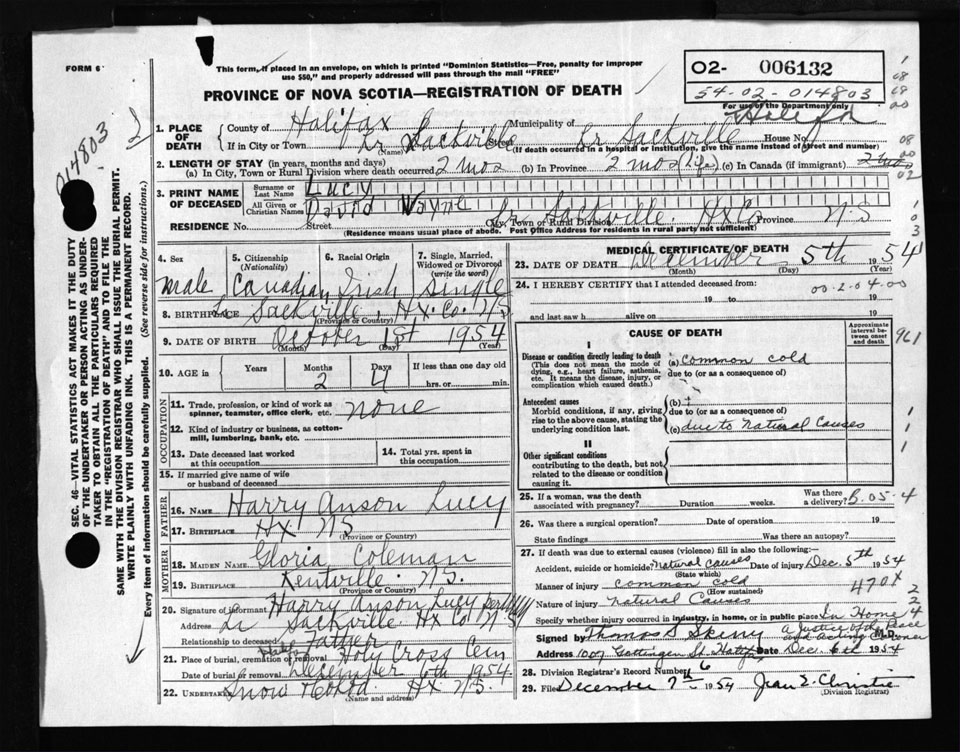 FORM 6
This form, if placed in an envelope, on which is printed "Dominion Statistics—Free, penalty for improper
use $50," and properly addressed will pass through the mail "FREE"
PROVINCE OF NOVA SCOTIA—REGISTRATION OF DEATH
02- 006132
54-02-014803
For use of the Department only
Halifax
014803
2
1. PLACE OF DEATH
County of Halifax Municipality of
If in City or Town Lr Sackville Street Lr Sackville House No.
(Name) (If death occurred in a hospital or institution, give the name instead of street and number)
2. LENGTH OF STAY (in years, months and days)
(a) In City, Town or Rural Division where death occurred 2 mos (b) In Province 2 mos (life) (c) In Canada (if immigrant) 2 mos
3. PRINT NAME OF DECEASED
Surname or Last Name Lucy
All Given or Christian Names David Wayne
RESIDENCE No. Street City, Town or Rural Division Lr Sackville Hx Co Province N-S
(Residence means usual place of abode. Post Office Address for residents in rural parts not sufficient)
SEC. 46—VITAL STATISTICS ACT MAKES IT THE DUTY
OF THE UNDERTAKER OR PERSON ACTING AS UNDER-
TAKER TO OBTAIN ALL THE PARTICULARS REQUIRED
IN THE "REGISTRATION OF DEATH" AND TO FILE THE
SAME WITH THE DIVISION REGISTRAR WHO SHALL ISSUE THE BURIAL PERMIT.
WRITE PLAINLY WITH UNFADING INK. THIS IS A PERMANENT RECORD.
Every item of information should be carefully supplied. (See reverse side for instructions.)
4. Sex male
5. Citizenship (Nationality) Canadian
6. Racial Origin Irish
7. Single, Married, Widowed or Divorced (write the word) Single
8. BIRTHPLACE Lr Sackville. Hx. Co. N/S
(Province or Country)
9. DATE OF BIRTH October 1st 1954
(Month) (Day) (Year)
10. AGE in Years Months 2 Days 4 If less than one day old
hrs. or min.
OCCUPATION
11. Trade, profession, or kind of work as spinner, teamster, office clerk, etc. none
12. Kind of industry or business, as cotton-mill, lumbering, bank, etc.
13. Date deceased last worked at this occupation
14. Total yrs. spent in this occupation
15. If married give name of wife or husband of deceased
FATHER
16. NAME Harry Anson Lucy
17. BIRTHPLACE Hx NS
(Province or Country)
MOTHER
18. MAIDEN NAME Gloria Coleman
19. BIRTHPLACE Kentville. N.S.
(Province or Country)
20. Signature of informant Harry Anson Lucy per
Address Lr Sackville. Hx Co N/S
Relationship to deceased Father
21. Place of burial, cremation or removal Halifax Holy Cross Cem
Date of burial or removal December 6th 1954
22. UNDERTAKER Snow & Co Ltd Hx N/S.
(Name and address)
MEDICAL CERTIFICATE OF DEATH
23. DATE OF DEATH December 5th 1954
(Month) (Day) (Year)
24. I HEREBY CERTIFY that I attended deceased from:
00-2-04-00
19 to 19
and last saw h alive on 19
CAUSE OF DEATH
Approximate interval between onset and death
961
I
Disease or condition directly leading to death
(This does not mean the mode of
dying, e.g., heart failure, asthenia,
etc. It means the disease, injury, or
complication which caused death.)
(a) common cold
due to (or as a consequence of)
Antecedent causes
Morbid conditions, if any, giving
rise to the above cause, stating the
underlying condition last.
(b)
due to (or as a consequence of)
(c) due to natural causes
II
Other significant conditions
contributing to the death, but not
related to the disease or condition
causing it.
25. If a woman, was the death associated with pregnancy? Duration weeks. Was there a delivery?
B.05-4
26. Was there a surgical operation? Date of operation 19
State findings Was there an autopsy?
27. If death was due to external causes (violence) fill in also the following:
Accident, suicide or homicide? Natural causes Date of injury Dec. 5th 1954
(State which)
Manner of injury common cold
(How sustained)
470X
Nature of injury natural causes
Specify whether injury occurred in industry, in home, or in public place In Home
Signed by Thomas S. a Justice of the Peace and acting Coroner M.D.
Address 1007 Gottingen St. Halifax Date Dec. 6th 1954
28. Division Registrar's Record Number 6
29. Filed December 7th 1954 Jean E. Christie
(Division Registrar)